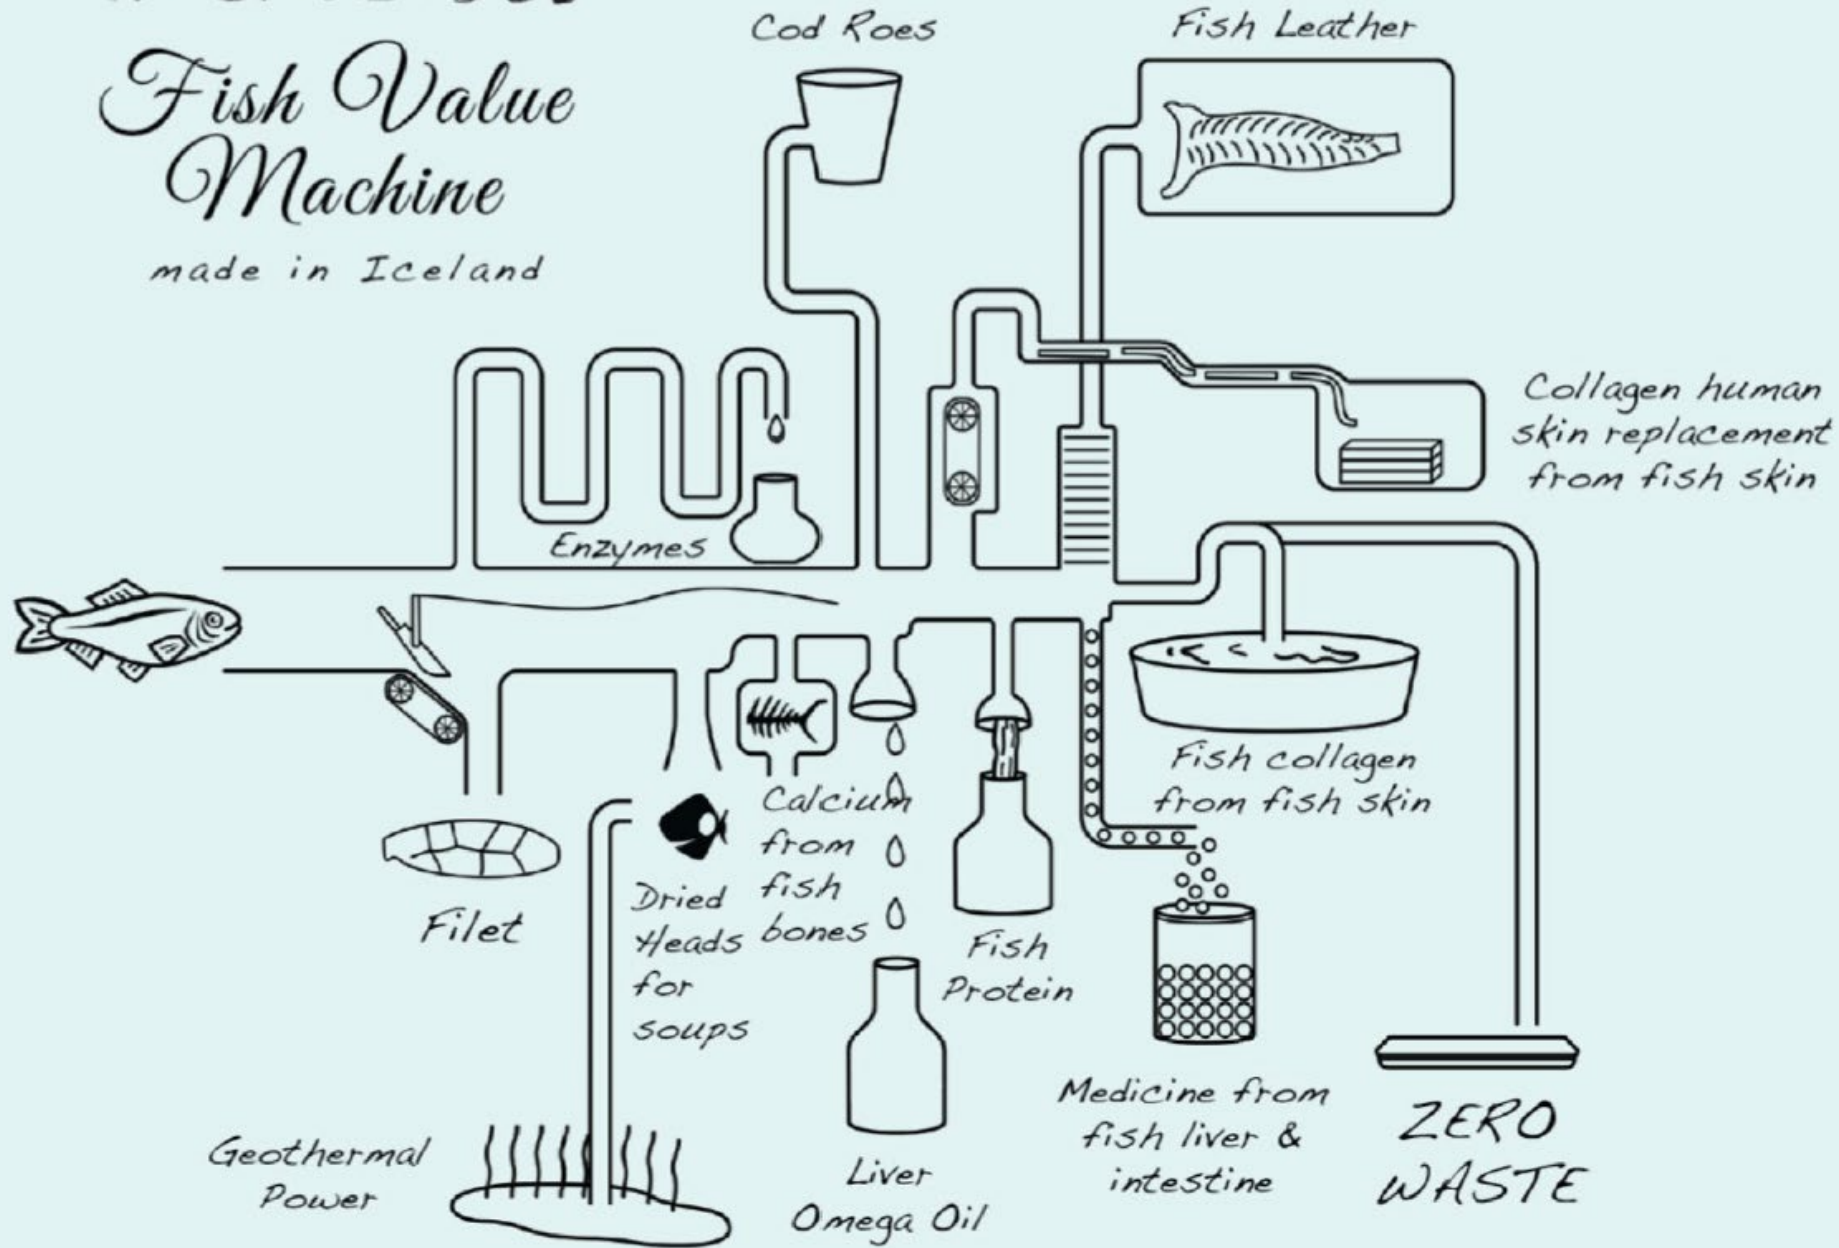 Fish Value
Machine
made in Iceland
Cod Roes
Fish Leather
Collagen human
skin replacement
from fish skin
Enzymes
Fish collagen
from fish skin
Filet
Dried
Heads
for
soups
Calcium
from
fish
bones
Fish
Protein
Liver
Omega Oil
Medicine from
fish liver &
intestine
ZERO
WASTE
Geothermal
Power